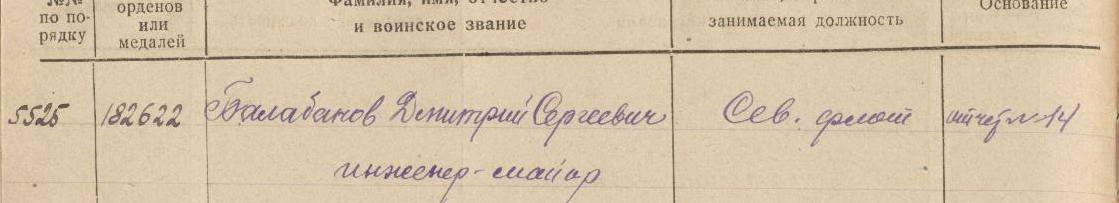 №№
по по-
рядку
орденов
или
медалей
Фамилия, имя, отчество
и воинское звание
занимаемая должность
Основание
5525 182622 Балабанов Дмитрий Сергеевич Сев. флот отчет № 14
инженер-майор